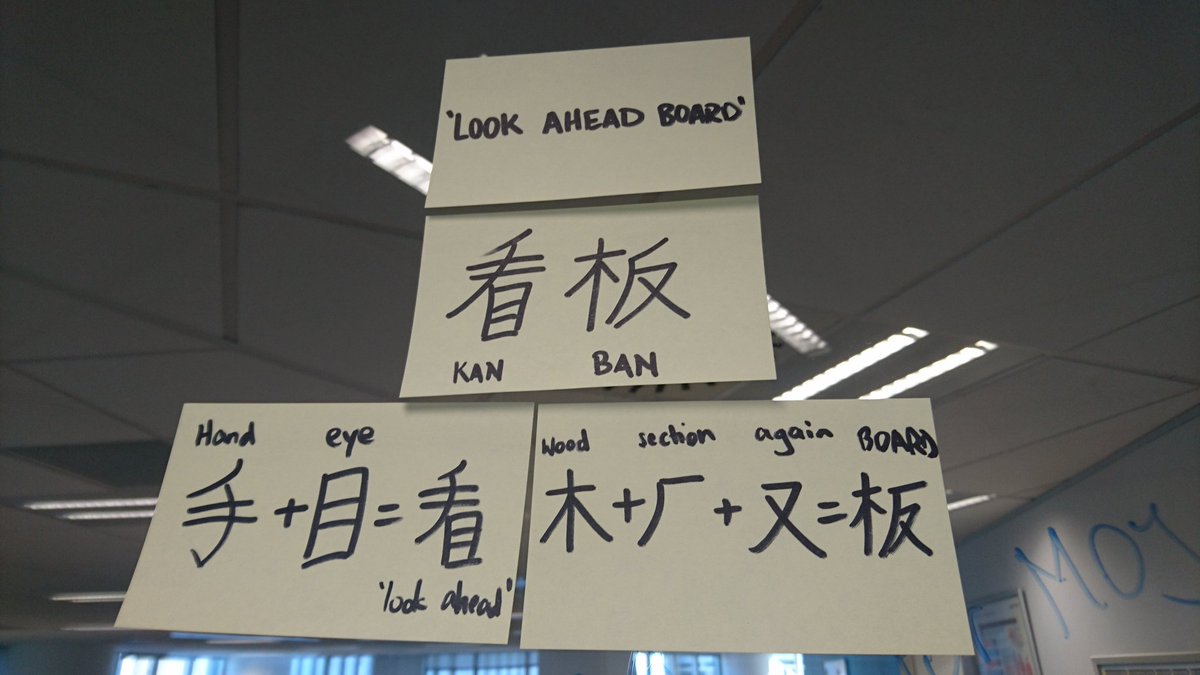 'LOOK AHEAD BOARD'
看板
KAN BAN
Hand eye
手+目=看
'look ahead'
Wood section again BOARD
木+厂+又=板
MOJ